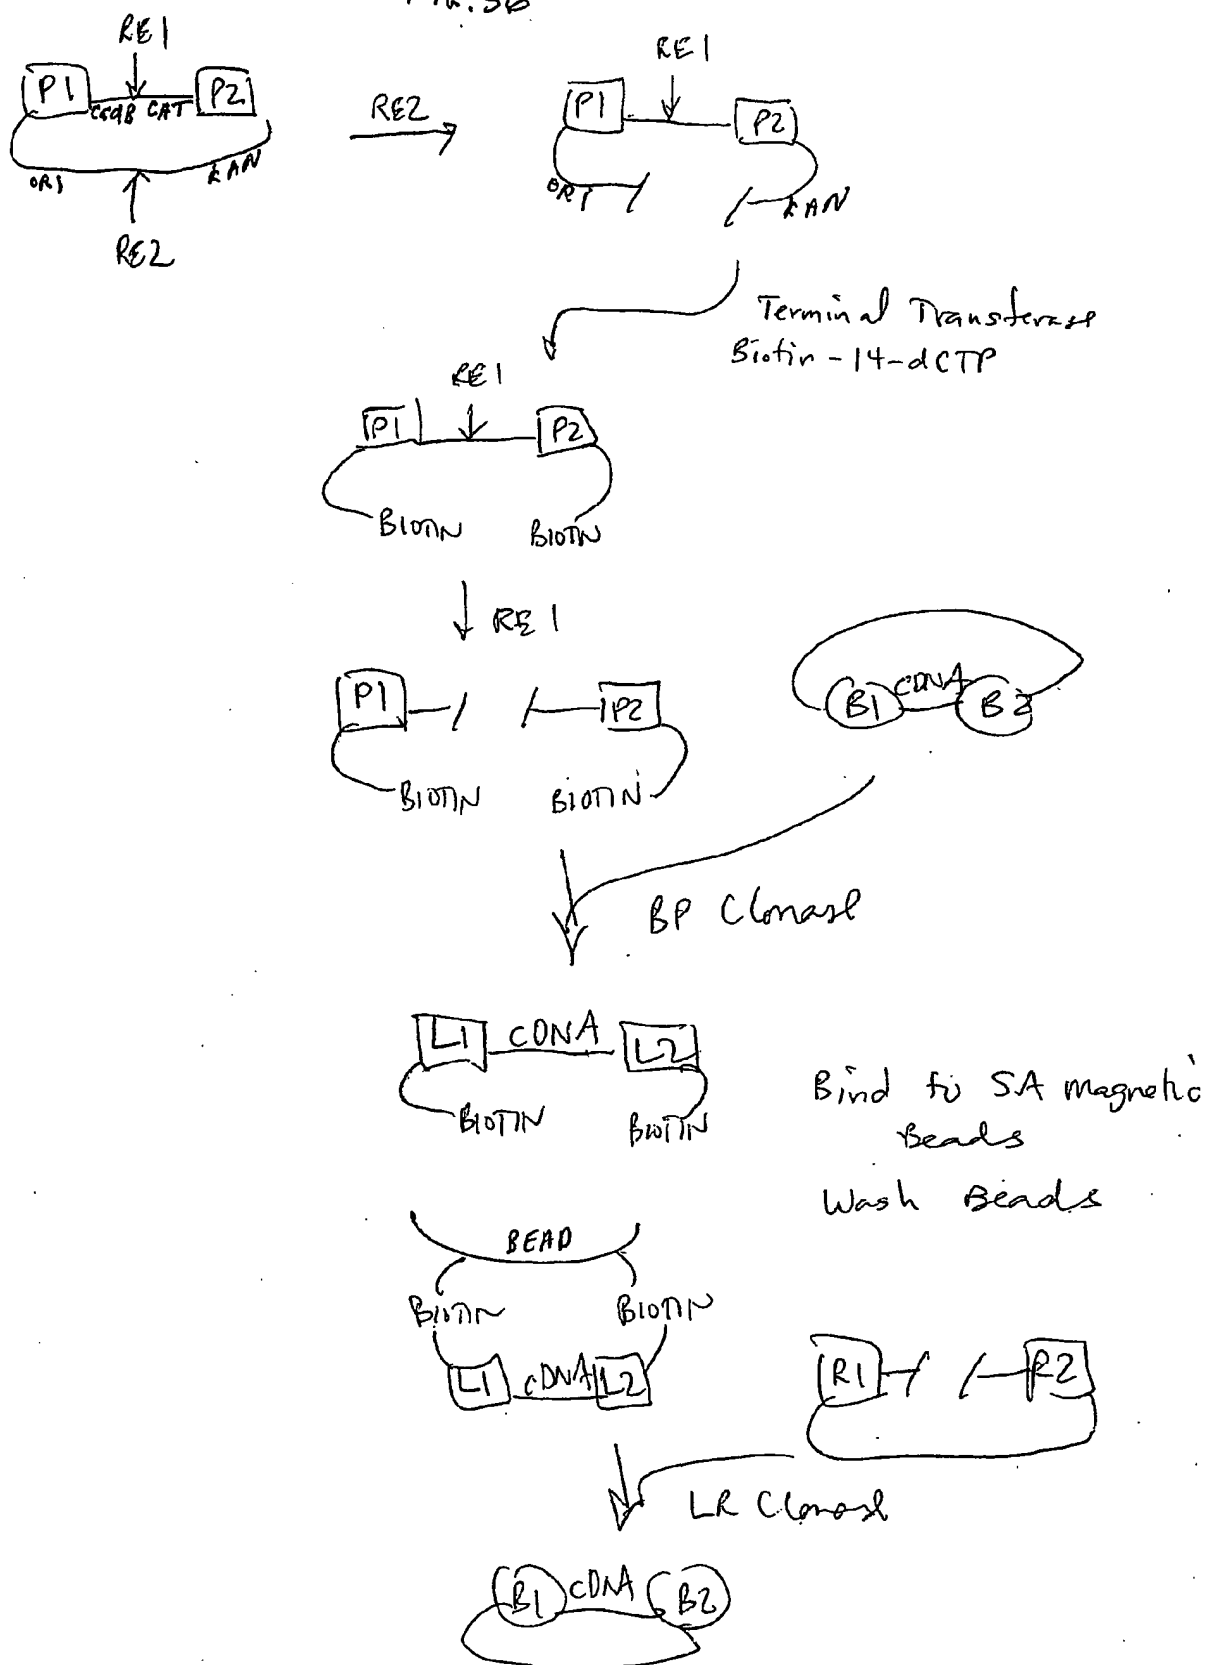 RE1
P1
P2
CAT
ORI
KAN
RE2
RE2
RE1
P1
P2
ORI
KAN
Terminal Transferase
Biotin-14-dCTP
RE1
P1
P2
BIOTIN
BIOTIN
RE1
P1
P2
BIOTIN
BIOTIN
B1 cDNA B2
BP Clonase
L1 cDNA L2
BIOTIN
BIOTIN
Bind to SA magnetic
Beads
Wash Beads
BEAD
BIOTIN
BIOTIN
L1 cDNA L2
R1
R2
LR Clonase
B1 cDNA B2